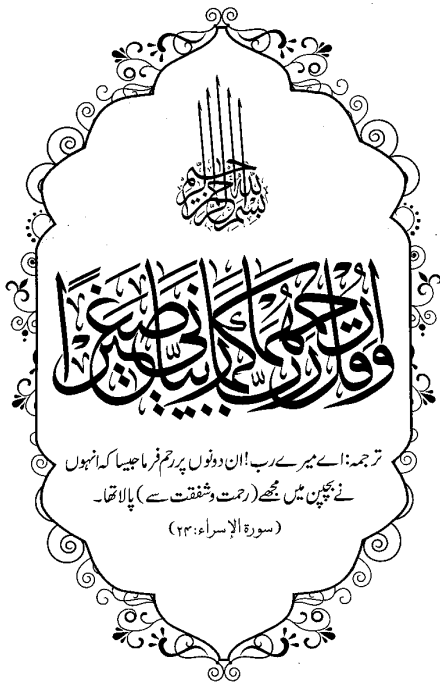 بسم الله الرحمن الرحيم
وقل رب ارحمهما كما ربياني صغيرا
ترجمہ: اے میرے رب! ان دونوں پر رحم فرما جیسا کہ انہوں
نے بچپن میں مجھے (رحمت و شفقت سے) پالا تھا۔
(سورۃ الإسراء: ۲۴)